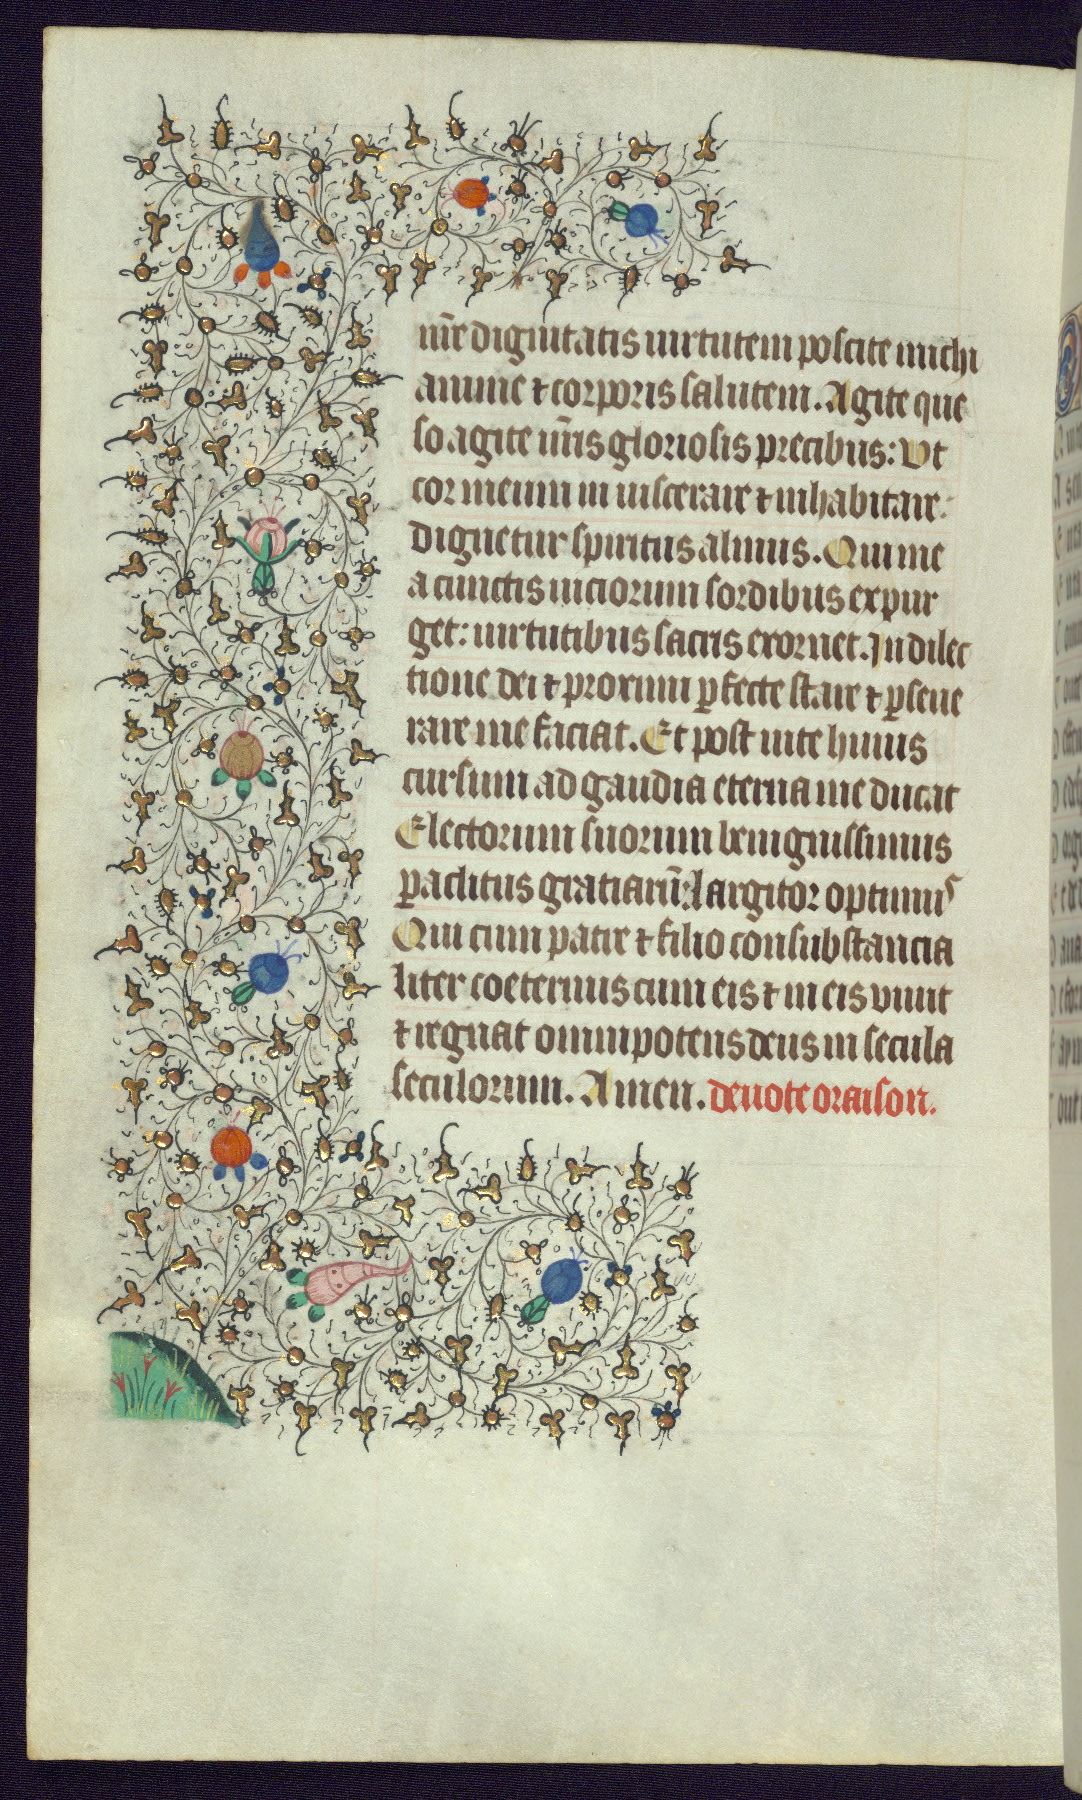 ur̄e dignitatis uirtutem poscite michi
anime ⁊ corporis salutem. Agite que
so agite ur̄is gloriosis precibus: Vt
cor meum in uiscerare ⁊ inhabitare
dignetur spiritus almus. Qui me
a cunctis uiciorum sordibus expur
get: uirtutibus sacris exornet. In dilec
tione dei ⁊ proximi ꝑfecte stare ⁊ ꝑseue
rare me faciat. Et post uite huius
cursum ad gaudia eterna me ducat
Electorum suorum benignissimus
ꝑaclitus gratiarū: largitor optimus
Qui cum patre ⁊ filio consubstancia
liter coeternus cum eis ⁊ in eis viuit
⁊ regnat omnipotens deus in secula
seculorum. Amen. deuote oraison.